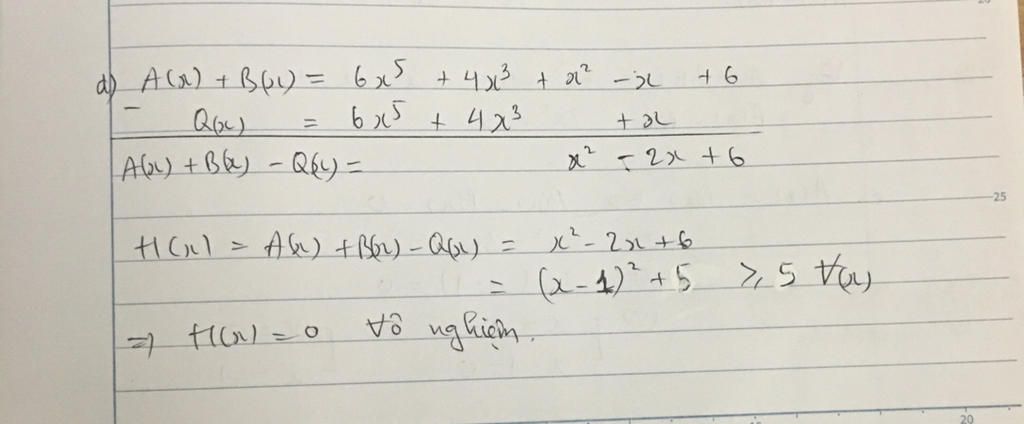 d) A(x) + B(x) = 6x⁵ + 4x³ + x² - x + 6
- Q(x) = 6x⁵ + 4x³ + x
A(x) + B(x) - Q(x) = x² - 2x + 6
25
H(x) = A(x) + B(x) - Q(x) = x² - 2x + 6
= (x - 1)² + 5 ⩾ 5 ∀(x)
⇒ H(x) = 0 vô nghiệm.
20